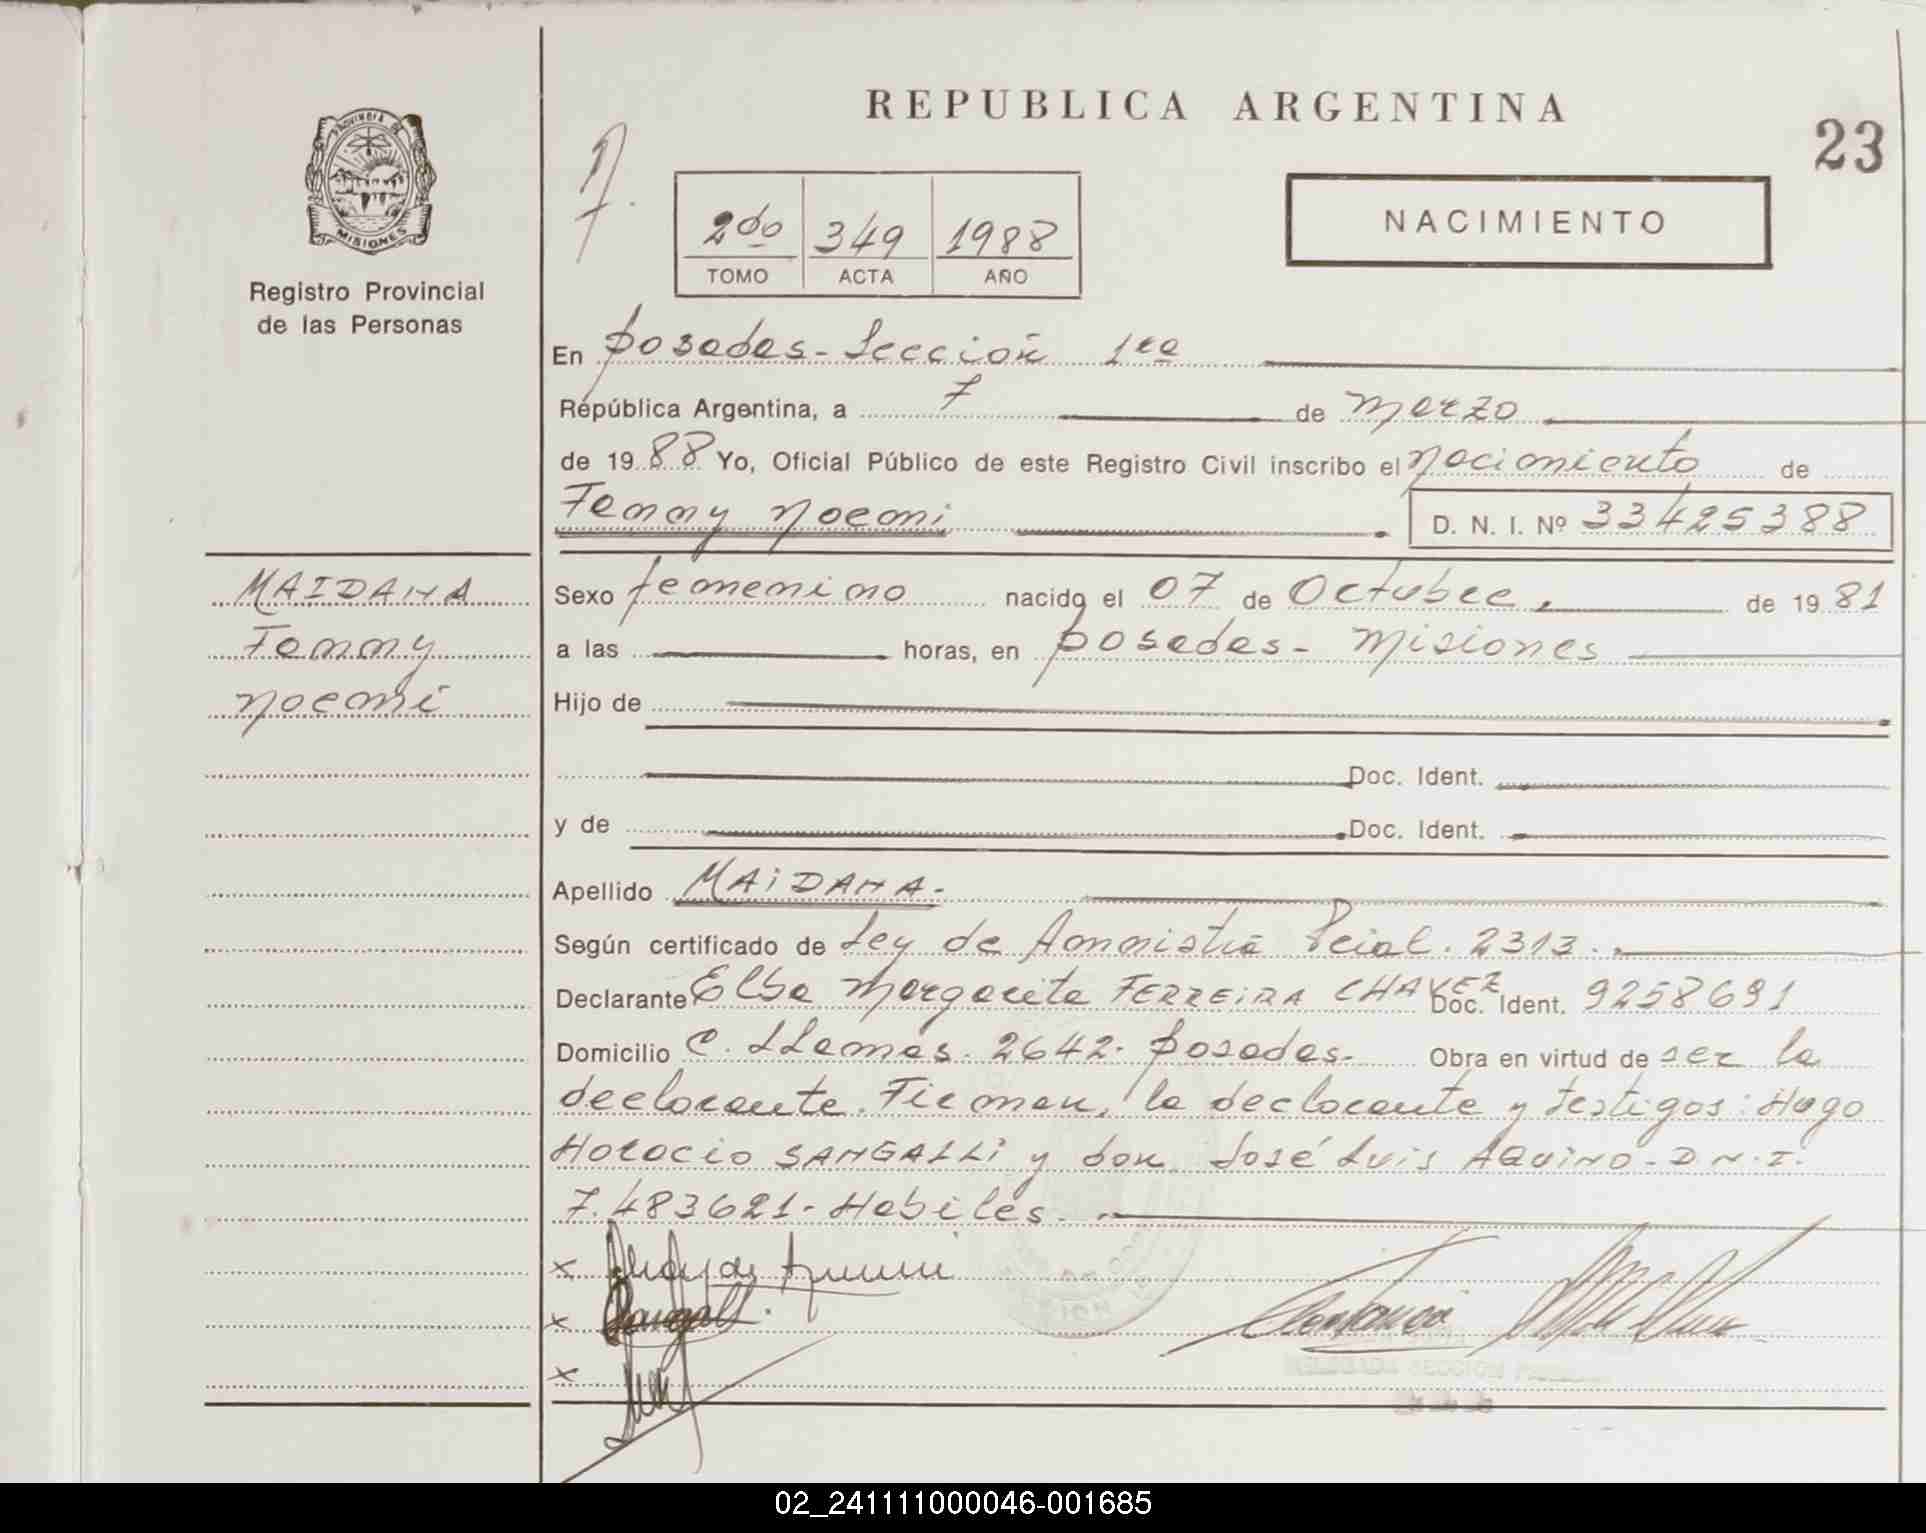 REPUBLICA ARGENTINA
23
PROVINCIA DE
MISIONES
Registro Provincial
de las Personas
2do 349 1988
TOMO ACTA AÑO
NACIMIENTO
En Posadas - Sección 1ra
República Argentina, a 7 de marzo
de 1988 Yo, Oficial Público de este Registro Civil inscribo el nacimiento de
Fanny Noemi D. N. I. Nº 33425388
MAIDANA
Fanny
Noemi
Sexo femenino nacido el 07 de Octubre de 1981
a las horas, en Posadas - Misiones
Hijo de
Doc. Ident.
y de Doc. Ident.
Apellido MAIDANA.
Según certificado de Ley de Amnistia Pcial. 2313.
Declarante Elba Margarita FERREIRA CHAVEZ Doc. Ident. 9258691
Domicilio C. LLamas. 2642. Posadas. Obra en virtud de ser la
declarante. Firman, la declarante y testigos: Hugo
Horacio SANGALLI y don José Luis AQUINO - D.N.I.
7.483621. Habiles.
02_241111000046-001685